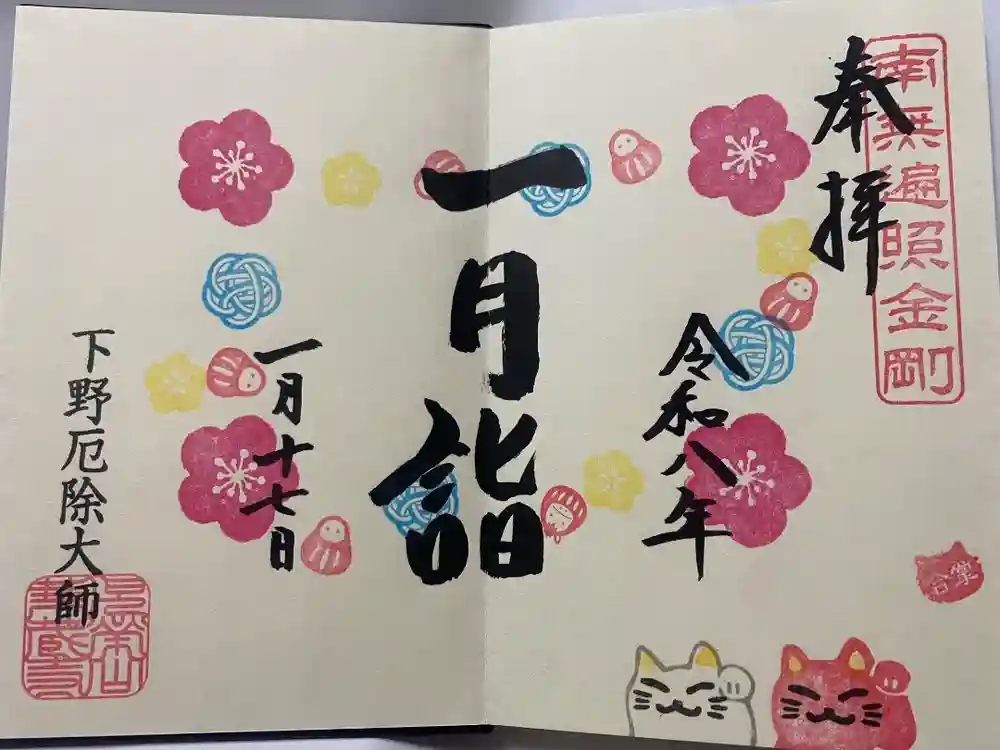 奉拝
南無遍照金剛
令和八年
一月詣
一月十七日
下野厄除大師
合掌